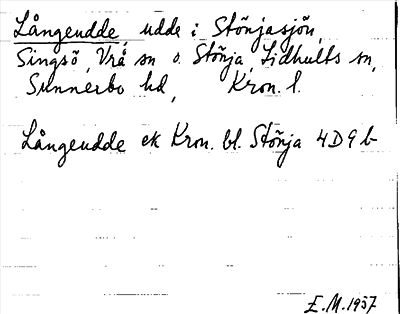 Långeudde, udde i Stönjasjön,
Singsö, Vrå sn o. Stönja, Lidhults sn,
Sunnerbo hd, Kron. l.
Långeudde ek Kron. bl. Stönja 4D9b
E.M. 1937